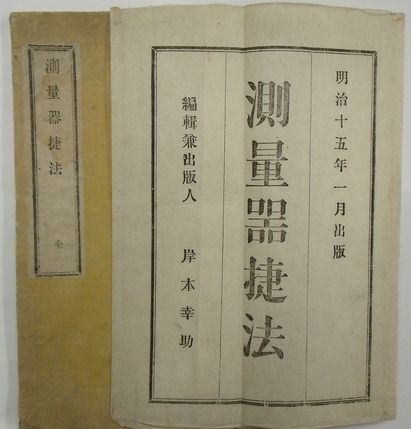 明治十五年一月出版
測量器捷法
編輯兼出版人 岸本幸助
測量器捷法 全